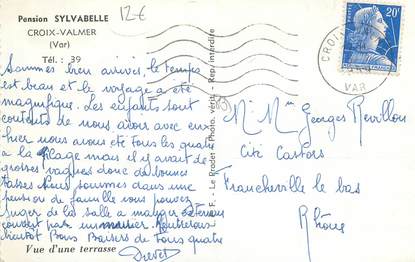 Pension SYLVABELLE
CROIX-VALMER
(Var)
Tél. : 39
12 €
Sommes bien arrivés, le temps
est beau et le voyage a été
magnifique. Les enfants sont
contents de nous avoir avec eux
hier nous avons été tous les quatre
a la plage mais il y avait de
grosses vagues donc de bonnes
tasses Nous sommes dans une
pension de famille vous pouvez
juger de la salle a manger extérieur
couvert par un murier.
bientôt Bons Baisers de tous quatre
Vue d'une terrasse
F. - Le Pradet - Photo. vérit. - Rep. interdite
CROIX
VAR
20F
M. Mme Georges Revillon
Cité Castors
Francheville le bas
Rhône